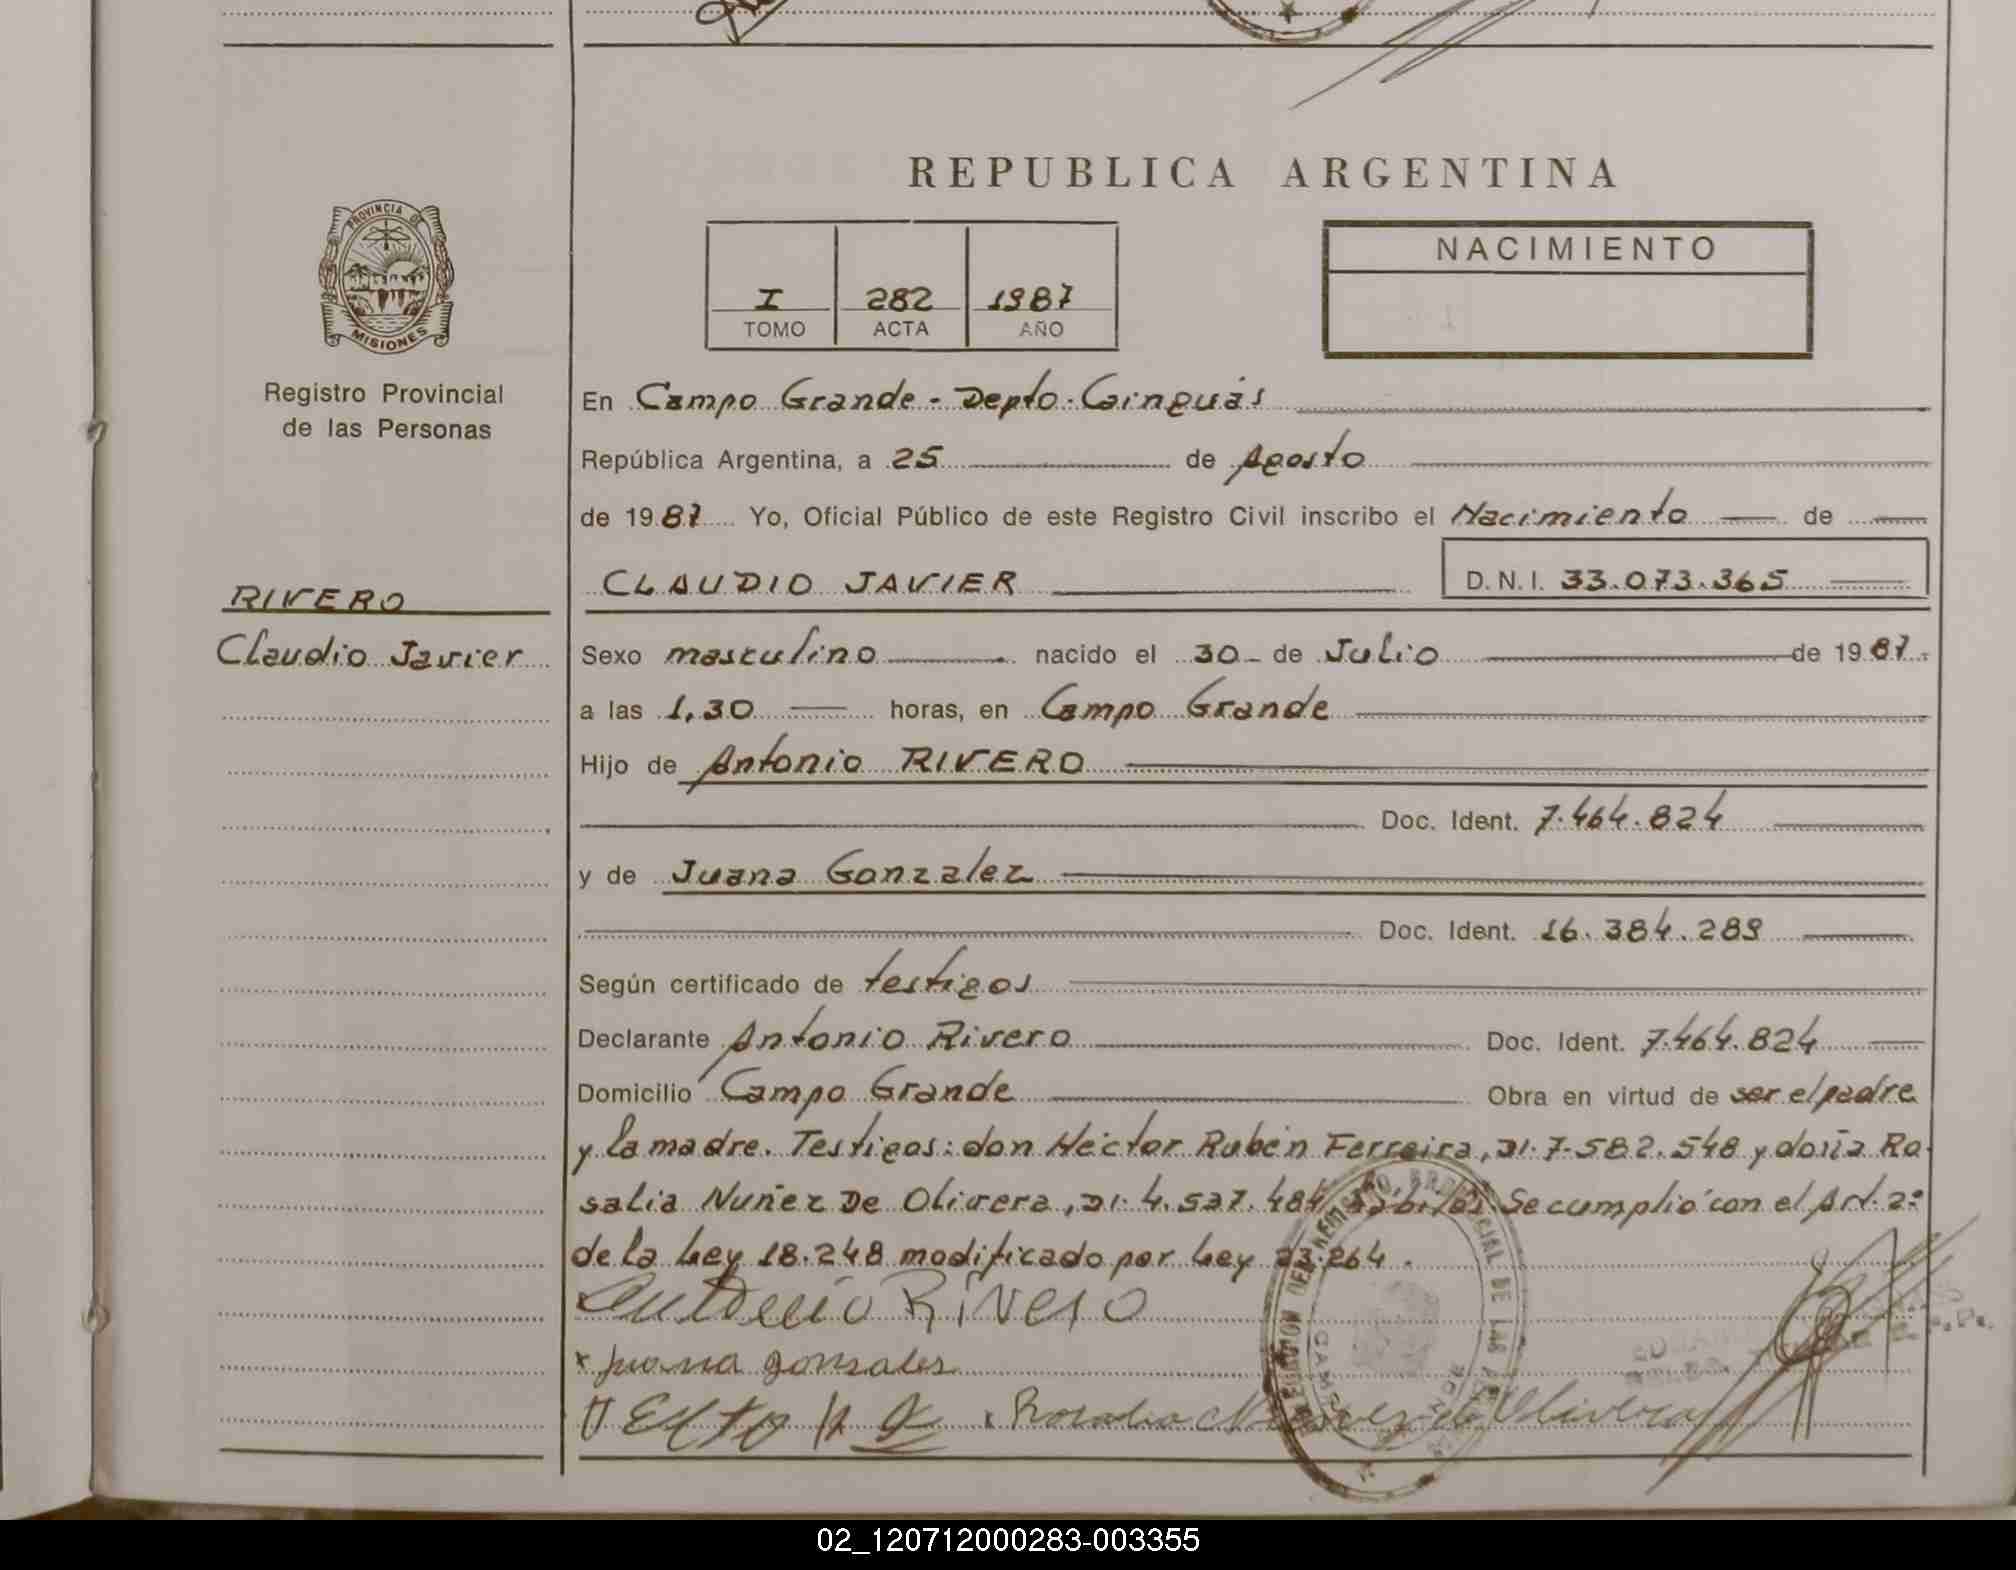 REPUBLICA ARGENTINA
PROVINCIA DE
MISIONES
Registro Provincial
de las Personas
I 282 1987
TOMO ACTA AÑO
NACIMIENTO
En Campo Grande - Depto. Cainguás
República Argentina, a 25 de Agosto
de 1987 Yo, Oficial Público de este Registro Civil inscribo el Nacimiento de
RIVERO
Claudio Javier
CLAUDIO JAVIER D.N.I. 33.073.365
Sexo masculino nacido el 30 de Julio de 1987.
a las 1,30 horas, en Campo Grande
Hijo de Antonio RIVERO
Doc. Ident. 7.464.824
y de Juana Gonzalez
Doc. Ident. 16.384.289
Según certificado de testigos
Declarante Antonio Rivero Doc. Ident. 7.464.824
Domicilio Campo Grande Obra en virtud de ser el padre
y la madre. Testigos: don Héctor Rubén Ferreira, DI. 7.582.548 y doña Ro
salia Nuñez De Olivera, DI. 4.527.484 hábiles. Se cumplió con el Art. 2º
de la Ley 18.248 modificado por Ley 23.264.
Antonio Rivero
x juana gonsales
x Rosalia Nuñez de Olivera
02_120712000283-003355